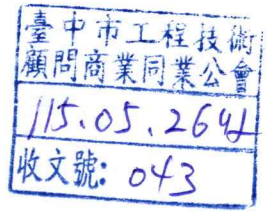 臺中市工程技術
顧問商業同業公會
115.05.26
收文號: 043